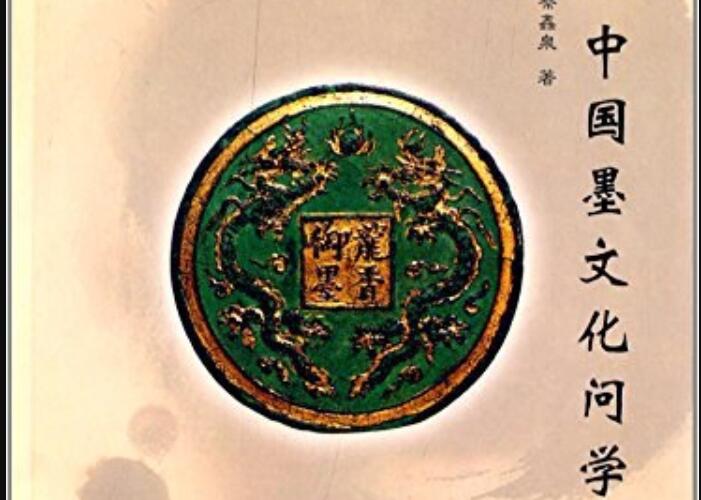 中国墨文化问学
蔡鑫泉 著
龍香
御墨